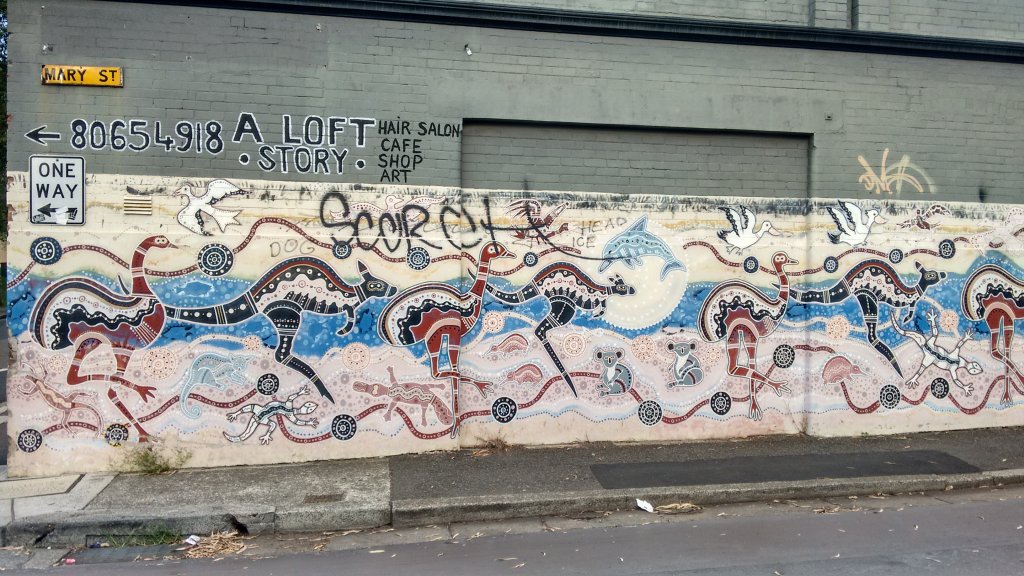 MARY ST
80654918
A LOFT
STORY
HAIR SALON
CAFE
SHOP
ART
ONE
WAY
DOG
HEAD
ICE